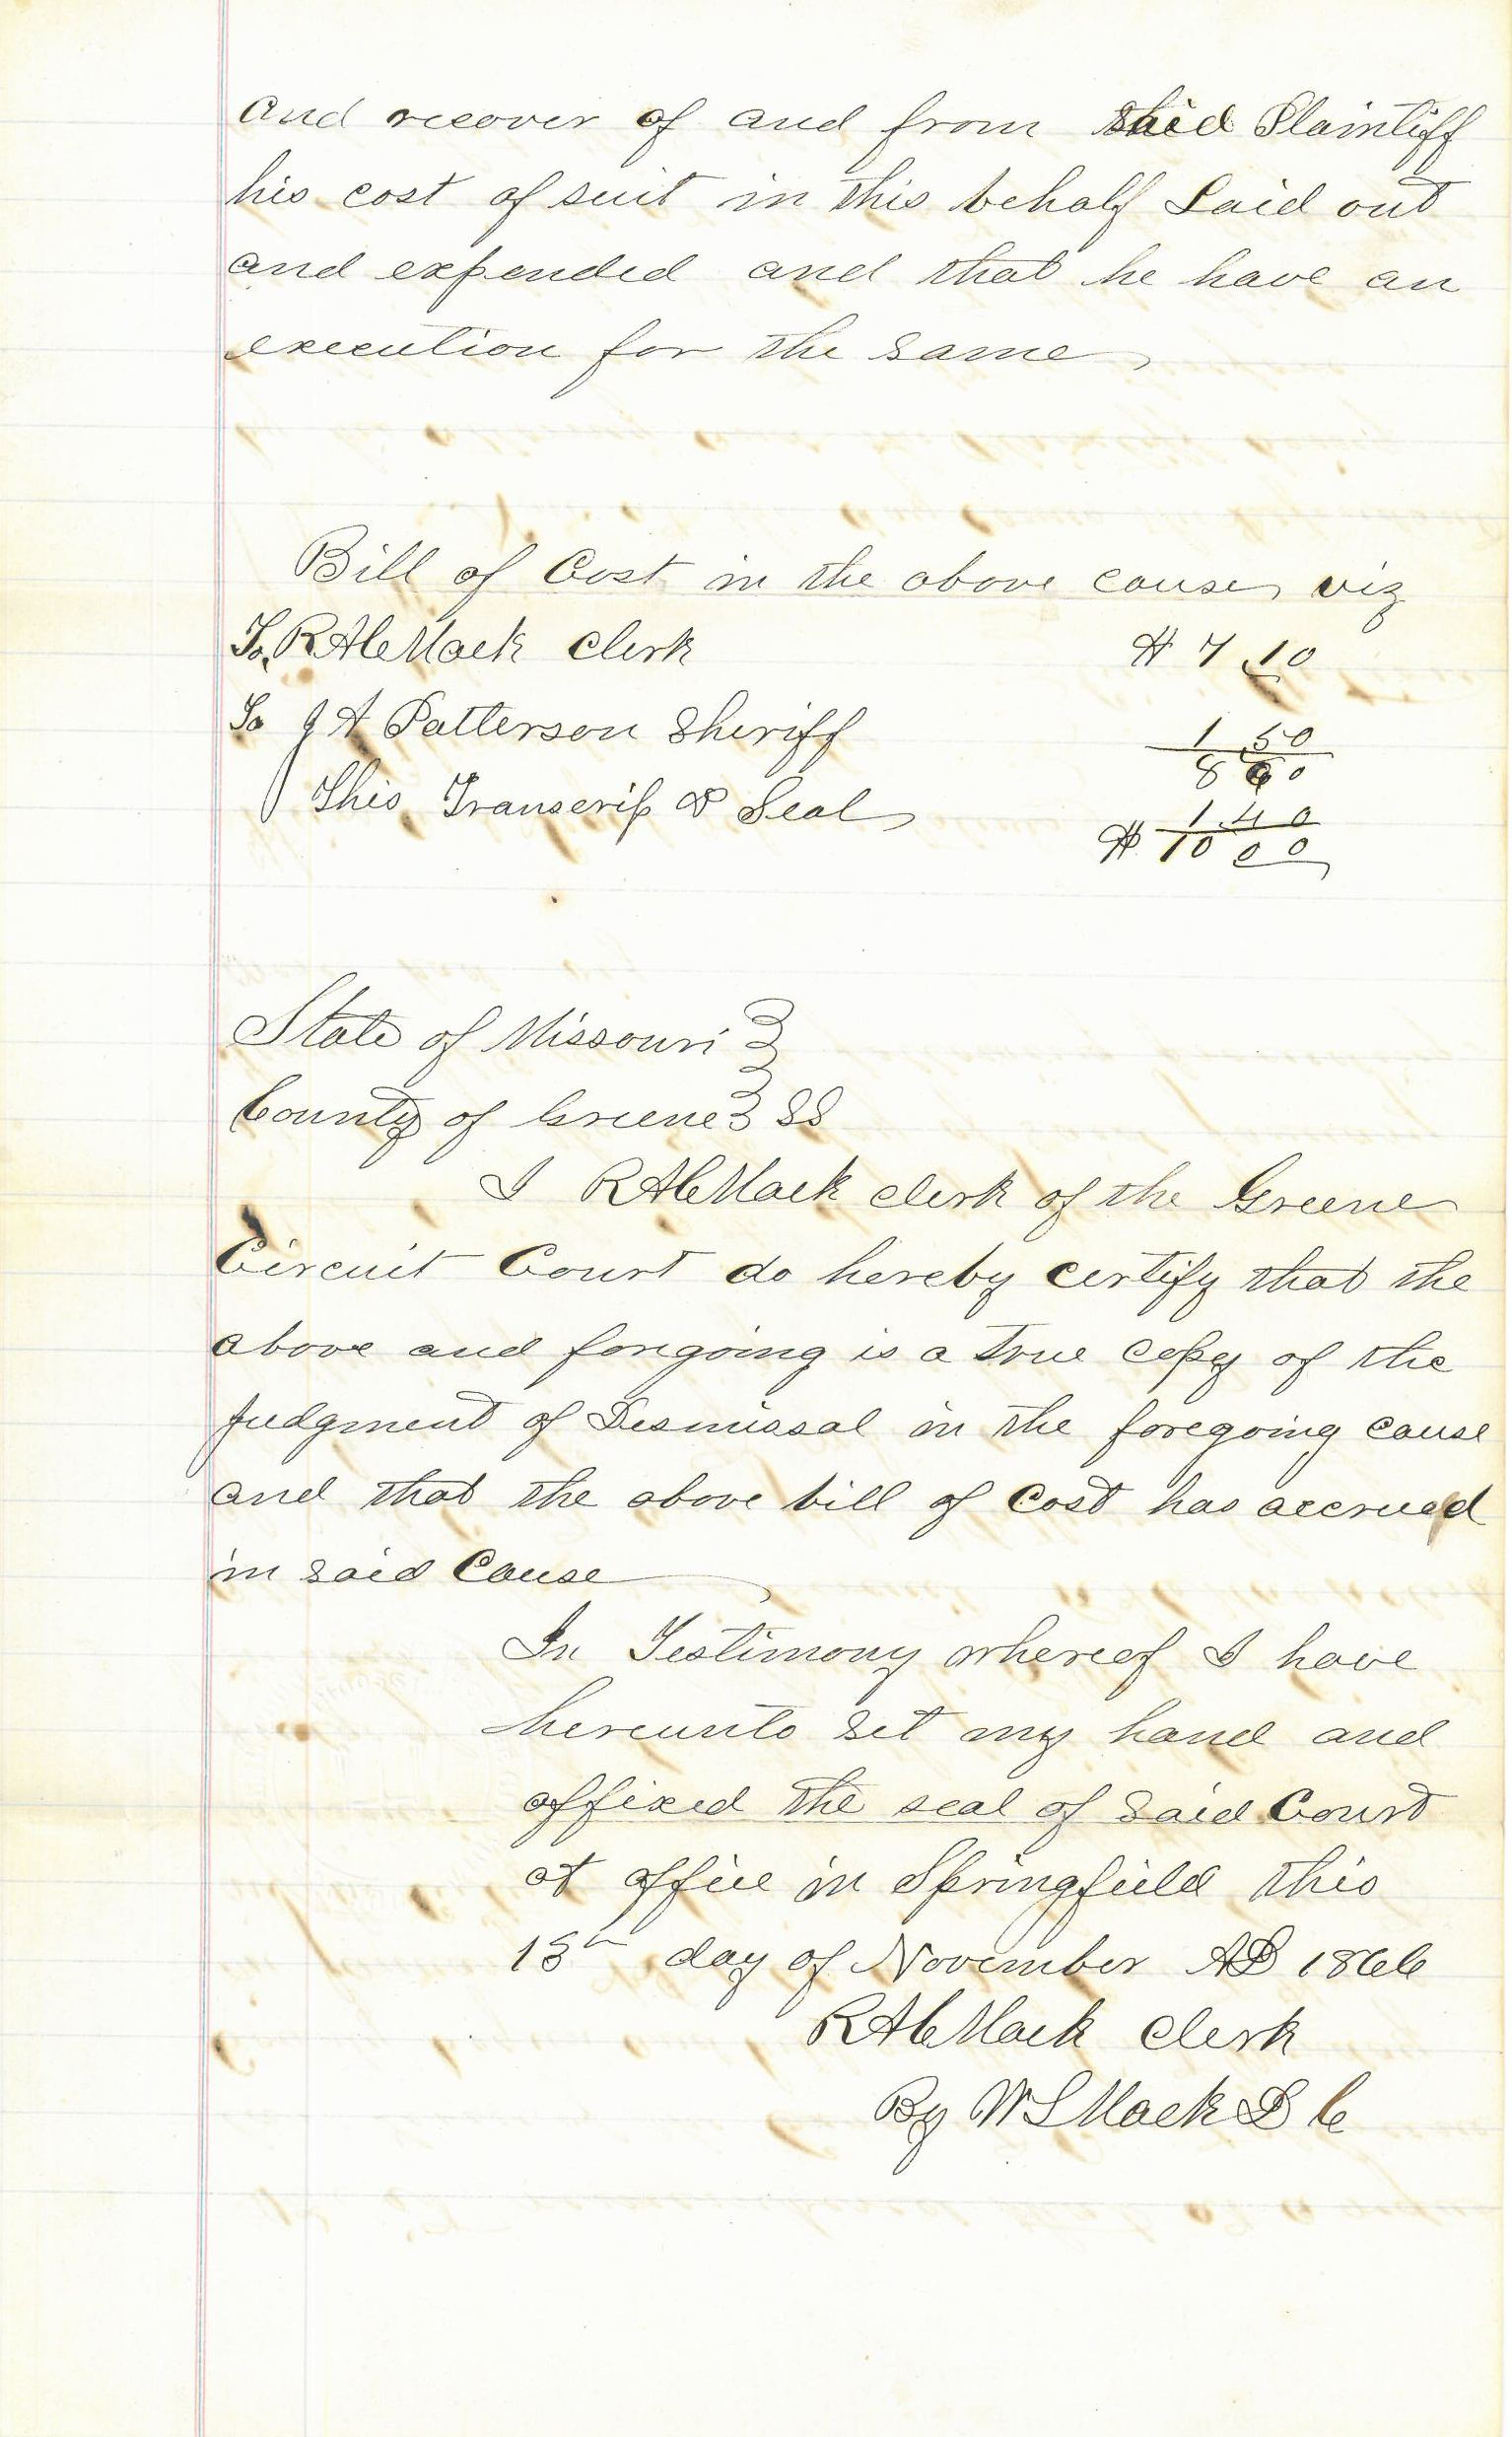 and recover of and from said Plaintiff
his cost of suit in this behalf Laid out
and expended and that he have an
execution for the same
Bill of Cost in the above cause, viz
To R A C Mack Clerk $ 7 10
To J A Patterson Sheriff 1 50
8 60
This Transcrip & Seal 1 40
$ 10 00
State of Missouri }
County of Greene } SS
I R A C Mack clerk of the Greene
Circuit Court do hereby certify that the
above and forgoing is a true copy of the
judgment of Dismissal in the foregoing cause
and that the above bill of Cost has accrued
in said Cause
In Testimony whereof I have
hereunto set my hand and
affixed the seal of said Court
at office in Springfield this
day of November AD 1866
R A C Mack Clerk
By W S Mack D C